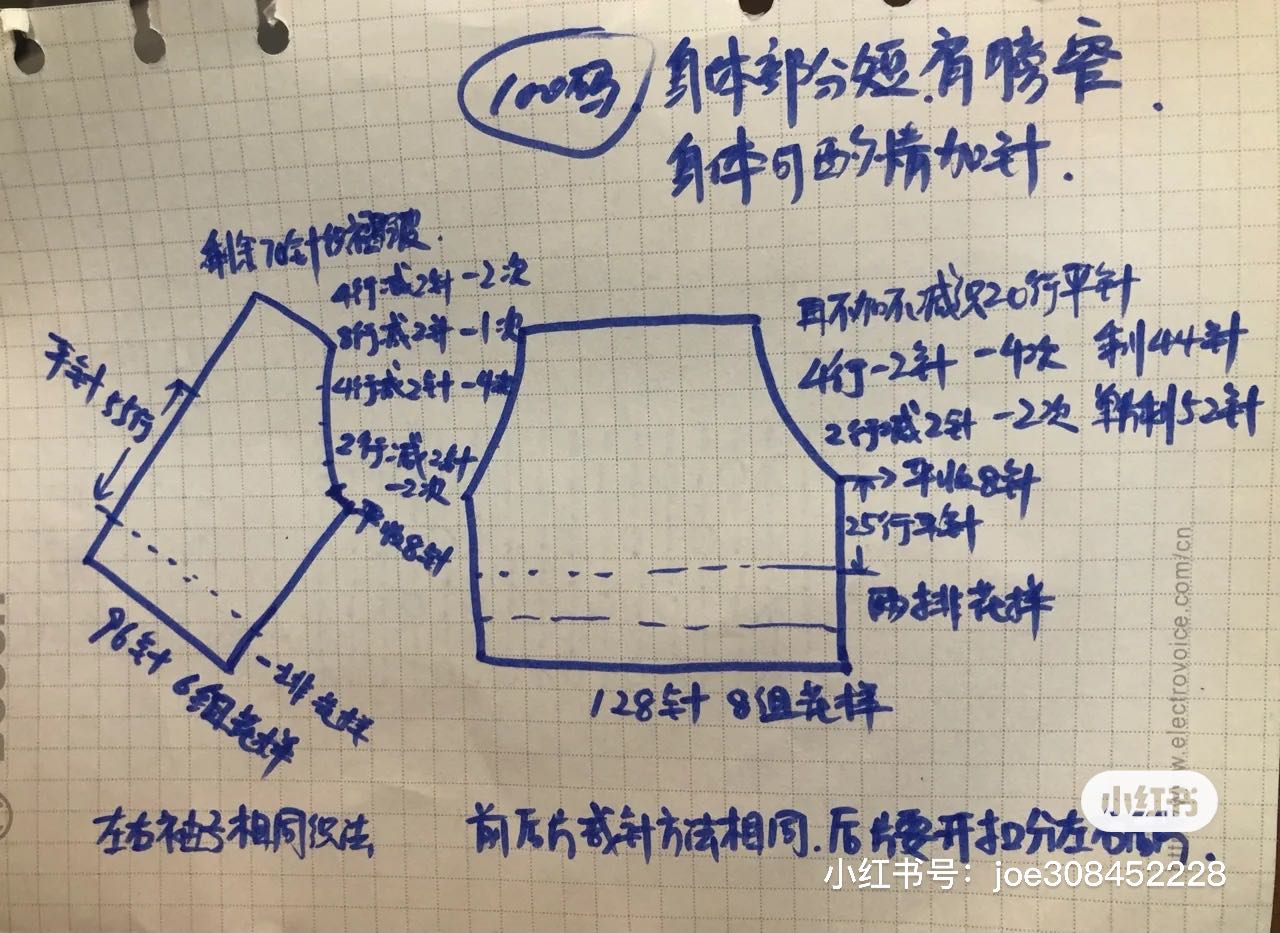 100码
身体部分短.肩膀窄.
身体可酌情加针.
剩余70针
4行减2针-2次
8行减2针-1次
4行减2针-4次
2行减2针
-2次
平收8针
平针55行
96针 6组花样
-2排花样
再不加不减织20行平针
4行-2针 -4次 剩44针
2行减2针 -2次 单片剩52针
平收8针
25行平针
两排花样
128针 8组花样
左右袖子相同织法
前后片减针方法相同.后片要开扣分左右
www.electrovoice.com/cn
小红书
小红书号：joe308452228